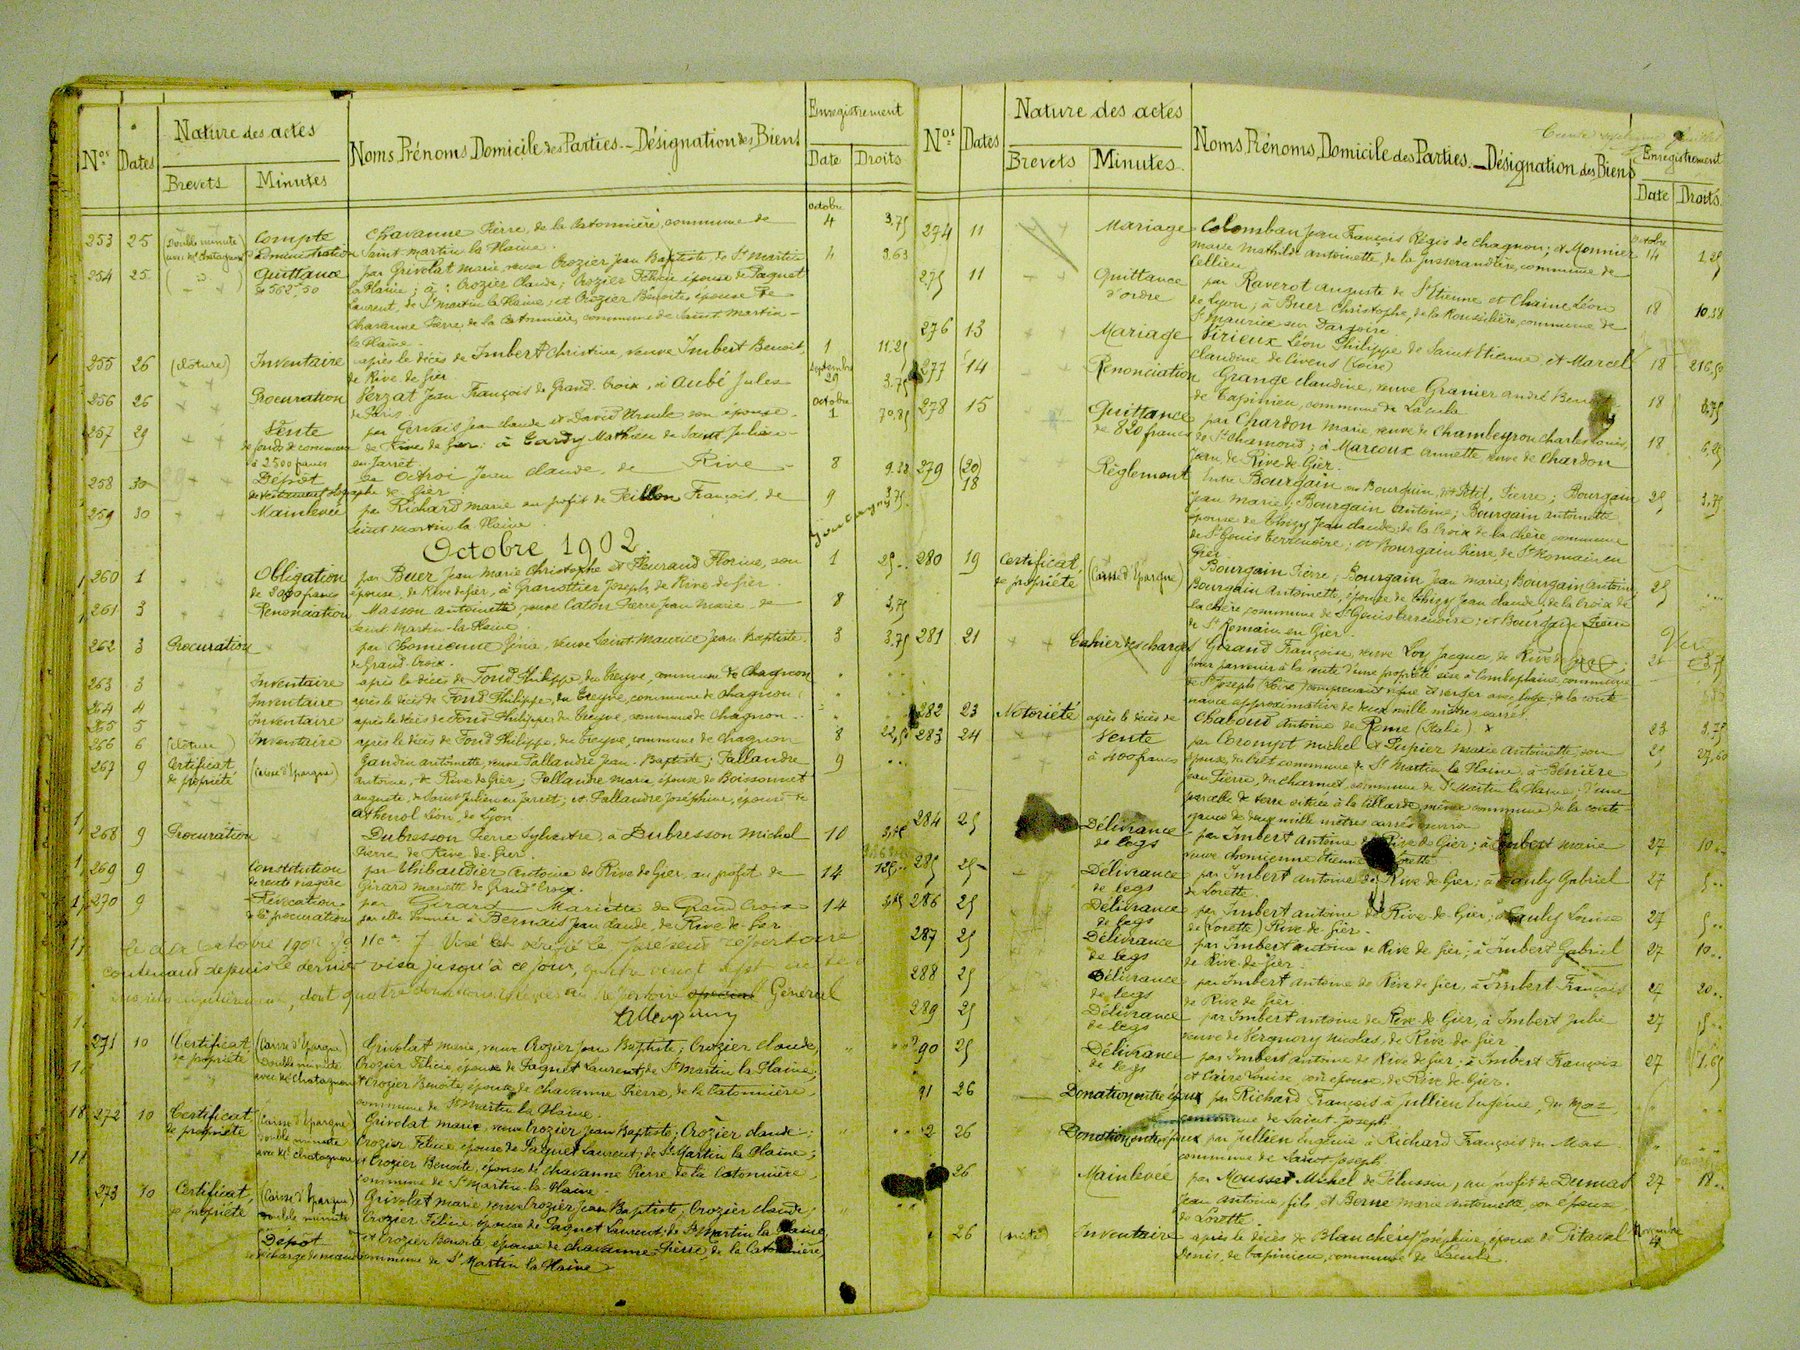 Nos Dates Nature des actes Brevets Minutes Noms, Prénoms, Domicile des Parties. _ Désignation des Biens Enregistrement Date Droits
253 25 (Double minute Compte Chavanne Pierre, de la Catonnière, commune de octobre 4 3,75
avec Me Chatagnon) d'administration Saint Martin la Plaine.
254 25 Quittance par Grivolat Marie, veuve Crozier Jean Baptiste de St Martin 4 3,63
de 562f,50 la Plaine ; à : Crozier Claude ; Crozier Félicie épouse de Paquet
Laurent, de St Martin la Plaine ; et Crozier Benoîte, épouse de
Chavanne Pierre, de la Catonnière, commune de Saint Martin-
la Plaine.
255 26 (clôture) Inventaire après le décès de Imbert Christine, veuve Imbert Benoit, 1 11,25
de Rive de Gier
256 26 Procuration Verzat Jean François de Grand-Croix, à Aubé Jules septembre 29 3,75
de Paris
257 29 Vente par Gervais Jean Claude et David Ursule son épouse octobre 1 70,85
de fonds de commerce de Rive de Gier. à Gardy Mathieu de Saint Julien-
à 2500 francs en Jarret
258 30 Dépôt de Octroi Jean Claude, de Rive 8 9.38
de testament olographe de Gier
259 30 Mainlevée par Richard Marie au profit de Peillon François, de 9 3,75
Saint Martin la Plaine.
Octobre 1902.
260 1 Obligation par Buer Jean Marie Christophe et Fleurand Florine, son 1 25..
de 2000 francs épouse, de Rive de Gier, à Granottier Joseph, de Rive de Gier.
261 3 Renonciation Masson Antoinette, veuve Caton Pierre Jean Marie, de 8 3,75
Saint-Martin-la-Plaine.
262 3 Procuration par Chomienne Jénie, veuve Saint-Maurice Jean Baptiste 3 3,75
de Grand Croix.
263 3 Inventaire après le décès de Fond Philippe, du Treyve, commune de Chagnon
264 4 Inventaire après le décès de Fond Philippe, du Treyve, commune de Chagnon
265 5 Inventaire après le décès de Fond Philippe, du Treyve, commune de Chagnon
266 6 (clôture) Inventaire après le décès de Fond Philippe, du Treyve, commune de Chagnon 8 22,50
267 9 Certificat (Caisse d'Epargne) Gandin Antoinette, veuve Pallandre Jean-Baptiste ; Pallandre 9
de propriété Antoine, de Rive de Gier ; Pallandre Marie épouse de Boissonnet
Auguste, de Saint Julien en Jarret ; et Pallandre Joséphine, épouse de
Athenol Léon, de Lyon.
268 9 Procuration Dubresson Pierre Sylvestre, à Dubresson Michel 10 3,75
Pierre, de Rive de Gier.
269 9 Constitution par Thibaudier Antoine de Rive de Gier, au profit de 14
de rente viagère Girard Mariette de Grand'Croix.
270 9 Révocation par Girard Mariette de Grand Croix 14
de procuration par elle donnée à Bernais Jean Claude, de Rive de Gier
Visé et vérifié le présent répertoire
contenant depuis le dernier visa jusqu'à ce jour, quatre vingt sept actes
Général
271 10 Certificat (Caisse d'Epargne) Grivolat Marie, veuve Crozier Jean Baptiste ; Crozier Claude,
de propriété Double minute Crozier Félicie, épouse de Paquet Laurent, de St Martin la Plaine ;
avec Me Chatagnon et Crozier Benoîte, épouse de Chavanne Pierre, de la Catonnière
commune de St Martin la Plaine.
272 10 Certificat (Caisse d'Epargne) Grivolat Marie veuve Crozier Jean Baptiste ; Crozier Claude ;
de propriété Double minute Crozier Félicie épouse de Paquet Laurent, de St Martin la Plaine ;
avec Me Chatagnon et Crozier Benoîte, épouse de Chavanne Pierre de la Catonnière
commune de St Martin-la-Plaine.
273 10 Certificat (Caisse d'Epargne) Grivolat Marie veuve Crozier Jean Baptiste ; Crozier Claude ;
de propriété Double minute Crozier Félicie, épouse de Paquet Laurent, de St Martin la Plaine
Dépôt et Crozier Benoîte, épouse de Chavanne Pierre, de la Catonnière
commune de St Martin la Plaine
Nos Dates Nature des actes Brevets Minutes Noms, Prénoms, Domicile des Parties. _ Désignation des Biens Enregistrement Date Droits
274 11 Mariage Colomban Jean François Régis de Chagnon ; et Monnier octobre 14 1,25
Marie Mathilde Antoinette, de la Jusserandière, commune de
Cellieu
275 11 Quittance par Raverot Auguste de St Etienne et Chaine Léon 18 10,38
d'ordre de Lyon ; à Buer Christophe, de la Roussilière, commune de
St Maurice sur Dargoire.
276 13 Mariage Virieux Léon Philippe de Saint Etienne et Marcel 18 216,50
Claudine de Civens (Loire)
277 14 Renonciation Grange Claudine, veuve Granier André Benoit 18 3,75
de Capinieu, commune de Lacula
278 15 Quittance par Chardon Marie veuve de Chambeyron Charles Louis, 18 6,25
de 820 francs de St Chamond ; à Marcoux Annette veuve de Chardon
Jean de Rive de Gier.
279 (20) 18 Règlement Entre Bourgain ou Bourguin, dit Petit, Pierre ; Bourgain 25 3,75
Jean Marie ; Bourgain Antoine ; Bourgain Antoinette
épouse de Thizy Jean Claude de la Croix de la chère commune
de St Genis Terrenoire ; et Bourgain Pierre de St Romain en
Gier
280 19 Certificat (Caisse d'Epargne) Bourgain Pierre ; Bourgain Jean Marie ; Bourgain Antoine 25
de propriété Bourgain Antoinette, épouse de Thizy Jean Claude, de la Croix de
la chère commune de St Genis Terrenoire ; et Bourgain Pierre
de St Romain en Gier.
281 21 Cahier des charges Girand Françoise, veuve Loy Jacques, de Rive de Gier ; 21 3,75
pour parvenir à la vente d'une propriété sise à Combeplaine, commune
de St Joseph (Loire) comprenant vigne et verger avec loge, de la conte-
nance approximative de deux mille mètres carrés
282 23 Notoriété après le décès de Chaboud Antoine de Rome (Italie) 23 3,75
283 24 Vente par Crompt Michel et Peypier Marie Antoinette son 25 27,60
à 400 francs épouse, du Crêt commune de St Martin la Plaine, à Bénière
Jean Pierre, du Charmet, commune de St Martin la Plaine ; d'une
parcelle de terre située à la Pillarde, même commune de la conte-
nance de deux mille mètres carrés environ
284 25 Délivrance par Imbert Antoine de Rive de Gier ; à Imbert Marie 27 10..
de legs veuve Chomienne Etienne de Lorette
285 25 Délivrance par Imbert Antoine de Rive de Gier ; à Pauly Gabriel 27 5..
de legs de Lorette
286 25 Délivrance par Imbert Antoine de Rive de Gier ; à Pauly Louise 27 5..
de legs de (Lorette) Rive-de-Gier.
287 25 Délivrance par Imbert Antoine de Rive de Gier ; à Imbert Gabriel 27 10..
de legs de Rive-de-Gier
288 25 Délivrance par Imbert Antoine de Rive de Gier, à Imbert François 27 20..
de legs de Rive de Gier
289 25 Délivrance par Imbert Antoine de Rive de Gier, à Imbert Julie 27 5..
de legs veuve de Vergnory Nicolas, de Rive de Gier
290 25 Délivrance par Imbert Antoine de Rive de Gier ; à Imbert François 27 1,65
de legs et Caire Louise, son épouse de Rive de Gier.
91 26 Donation entre époux par Richard François à Jullien Eugénie, du Mas
commune de Saint Joseph
2 26 Donation entre époux par Jullien Eugénie à Richard François du Mas
commune de Saint Joseph.
26 Mainlevée par Mousset Michel de Pélussin, au profit de Dumas 27 18..
Jean Antoine fils et Berne Marie Antoinette son épouse,
de Lorette
26 Inventaire après le décès de Blancheref Joséphine, épouse de Pitaval Novembre 4
Denis, de Capinieu, commune de Lacula.